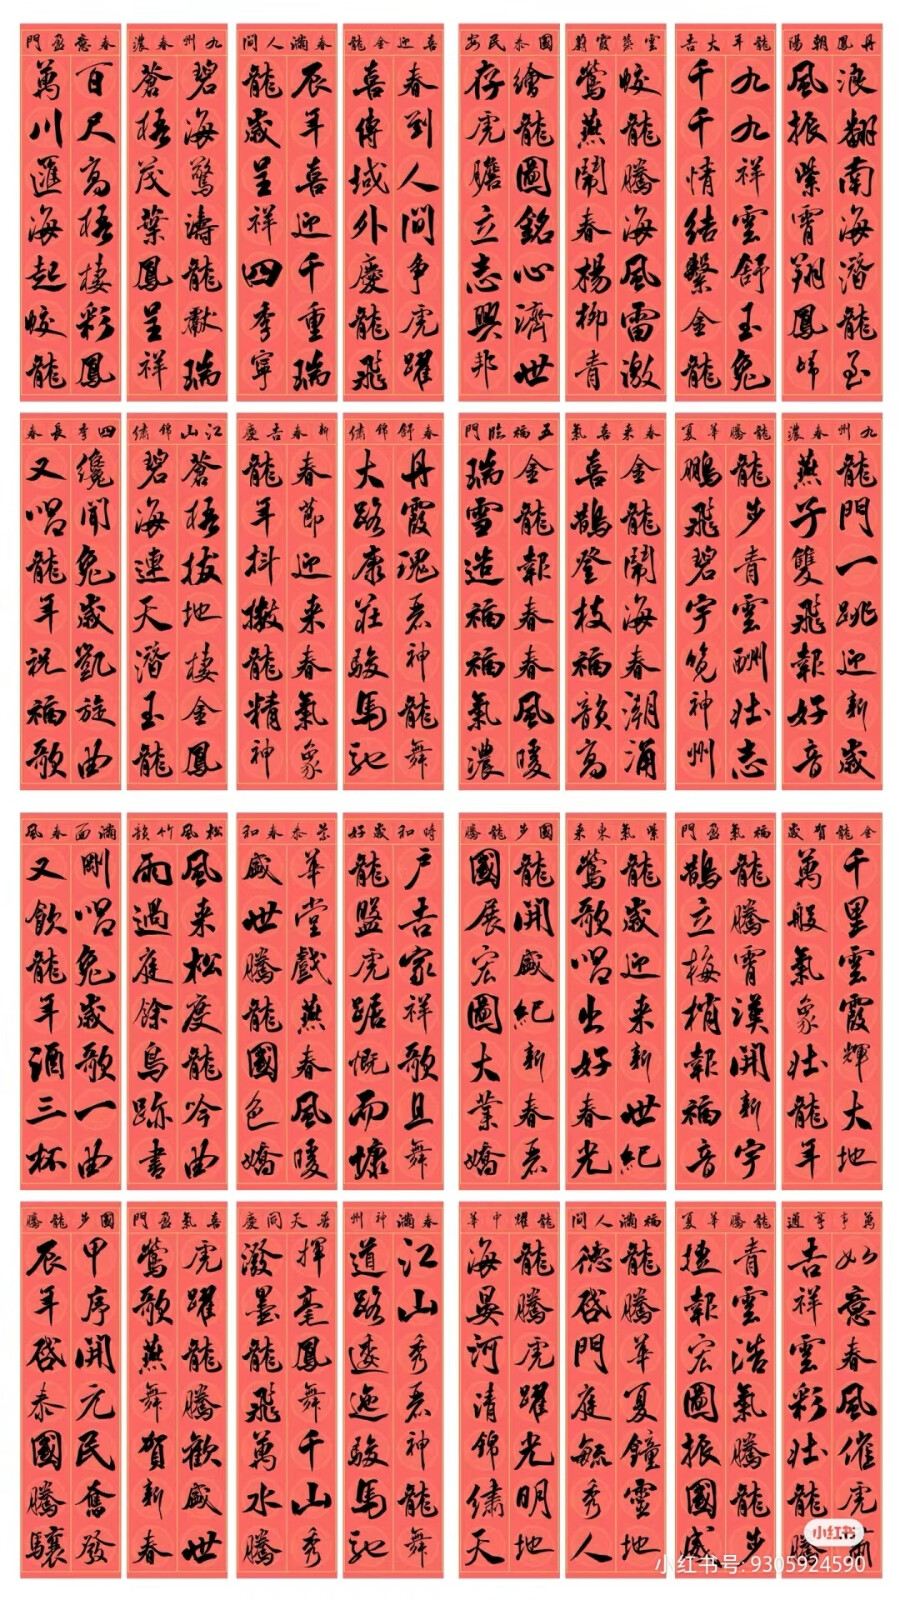 丹鳳朝陽
浪翻南海潛龍至
風振紫霄翔鳳歸
龍年大吉
九九祥雲舒玉兔
千千情結繫金龍
雲蒸霞蔚
蛟龍騰海風雷激
鶯燕鬧春楊柳青
國泰民安
繪龍圖銘心濟世
存虎膽立志興邦
喜迎金龍
春到人間爭虎躍
喜傳域外慶龍飛
春滿人間
辰年喜迎千重瑞
龍歲呈祥四季寧
九州春濃
碧海驚濤龍獻瑞
蒼梧茂葉鳳呈祥
春意盈門
百尺高梧棲彩鳳
萬川匯海起蛟龍
九州春濃
龍門一跳迎新歲
燕子雙飛報好音
龍騰華夏
龍步青雲酬壯志
鵬飛碧宇覽神州
春来喜氣
金龍鬧海春潮涌
喜鵲登枝福韻高
五福臨門
金龍報春春風暖
瑞雪造福福氣濃
春舒錦繡
丹霞瑰麗神龍舞
大路康莊駿馬馳
新春吉慶
春節迎来春氣象
龍年抖擻龍精神
江山錦繡
蒼梧拔地棲金鳳
碧海連天潛玉龍
四季長春
纔聞兔歲凱旋曲
又唱龍年祝福歌
金龍賀歲
千里雲霞輝大地
萬般氣象壯龍年
福氣盈門
龍騰霄漢開新宇
鵲立梅梢報福音
紫氣東来
龍歲迎来新世紀
鶯歌唱出好春光
國步龍騰
龍開盛紀新春麗
國展宏圖大業嬌
時和歲好
戶吉家祥歌且舞
龍盤虎踞慨而慷
泰春和
華堂戲燕春風暖
盛世騰龍國色嬌
松風竹韻
風来松度龍吟曲
雨過庭餘鳥跡書
滿面春風
剛唱兔歲歌一曲
又飲龍年酒三杯
萬事亨通
如意春風催虎嘯
吉祥雲彩壯龍騰
龍騰華夏
青雲浩氣騰龍步
捷報宏圖振國威
福滿人間
龍騰華夏鐘靈地
德啓門庭毓秀人
龍耀中華
龍騰虎躍光明地
海晏河清錦繡天
春滿神州
江山秀麗神龍舞
道路逶迤駿馬馳
普天同慶
揮毫鳳舞千山秀
潑墨龍飛萬水騰
喜氣盈門
虎躍龍騰歡盛世
鶯歌燕舞賀新春
國步龍騰
甲序開元民奮發
辰年啓泰國騰驤
小红书
小红书号: 9305924590